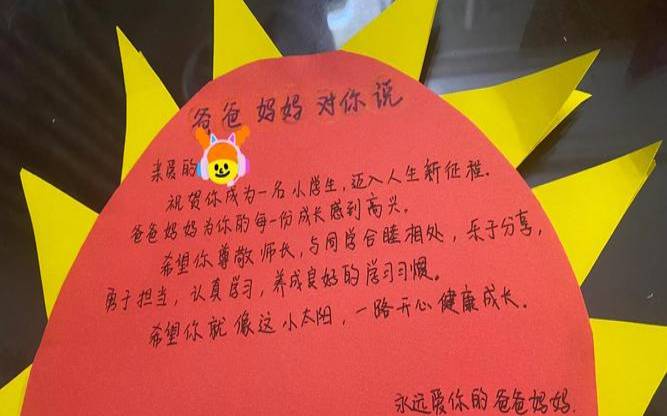 爸爸妈妈对你说
亲爱的
祝贺你成为一名小学生,迈入人生新征程。
爸爸妈妈为你的每一份成长感到高兴。
希望你尊敬师长,与同学合睦相处,乐于分享,
勇于担当,认真学习,养成良好的学习习惯。
希望你就像这小太阳,一路开心健康成长。
永远爱你的爸爸妈妈